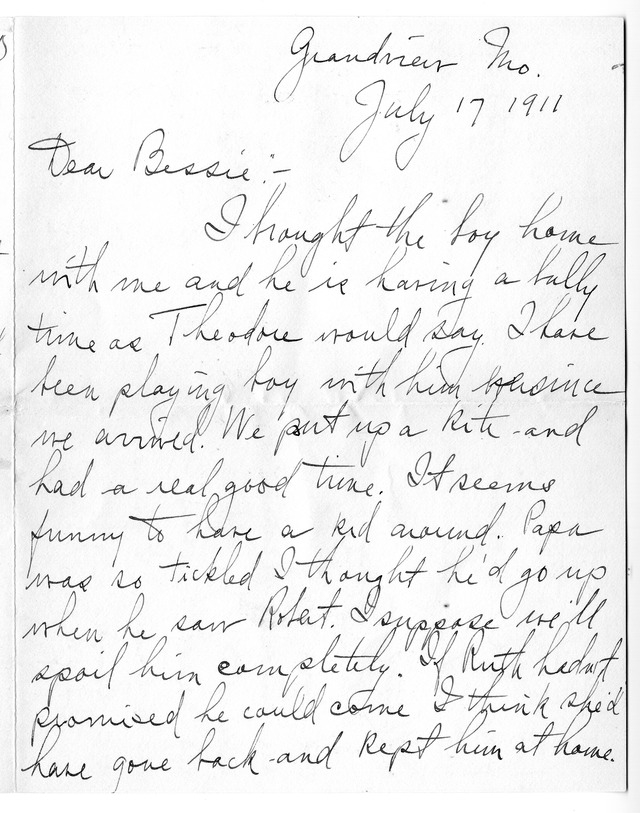 Grandview Mo.
July 17 1911
Dear Bessie:-
I brought the boy home
with me and he is having a bully
time as Theodore would say. I have
been playing boy with him since
we arrived. We put up a kite and
had a real good time. It seems
funny to have a kid around. Papa
was so tickled I thought he'd go up
when he saw Robert. I suppose we'll
spoil him completely. If Ruth hadn't
promised he could come I think she'd
have gone back and kept him at home.